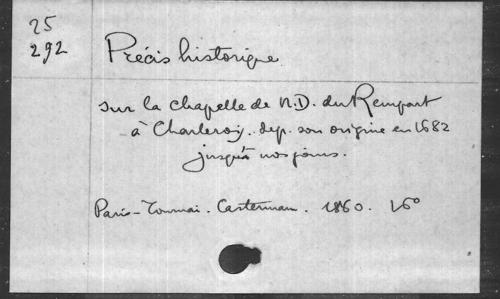 25
292
Précis historique
sur la chapelle de N.D. du Rempart
à Charleroy. dep. son origine en 1682
jusqu'à nos jours.
Paris-Tournai. Casterman. 1860. 16°